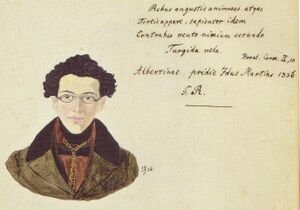 Rebus angustis animosus atque
Fortis appare, sapienter idem
Contrahes vento nimium secundo
Turgida vela.
Horat. Carm. II, 10
Albertinae, pridie Idus Martias 1836
1836.